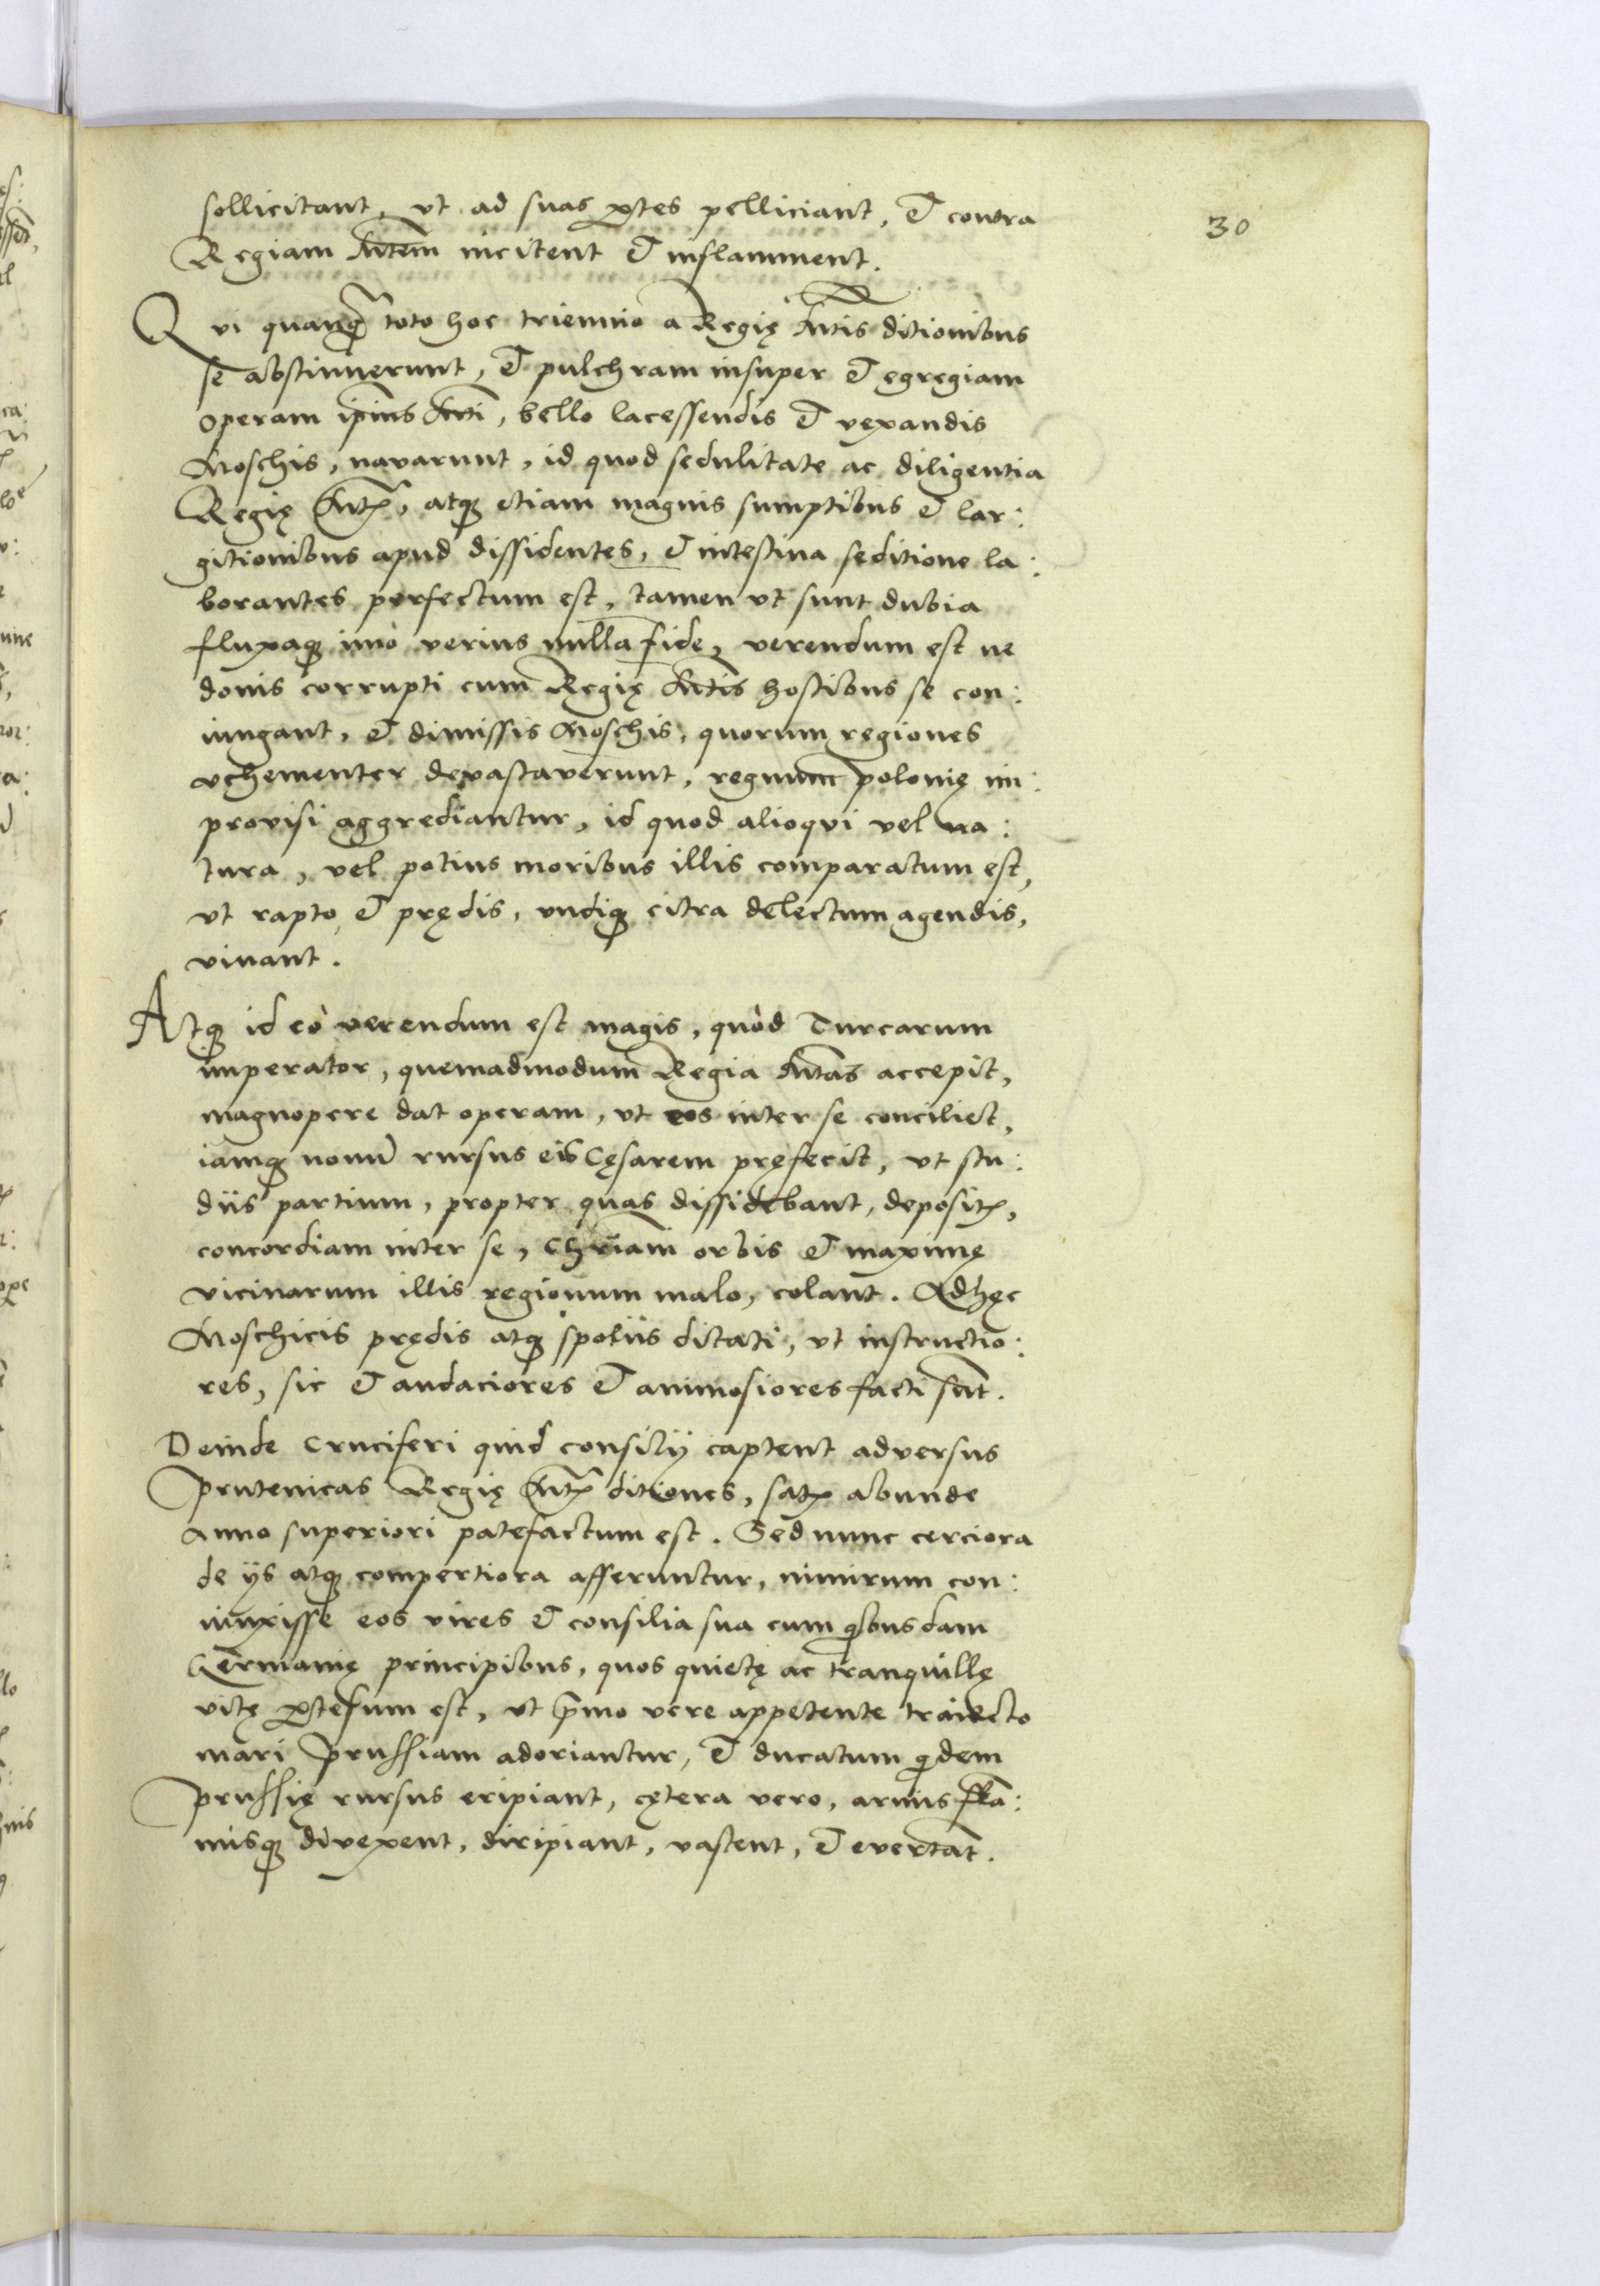 30
sollicitant, vt ad suas ꝑtes pelliciant, et contra
Regiam Mtem incitent et inflamment.
Qvi quanꝗ̃ toto hoc triennio a Regię Mtis ditionibus
se abstinuerunt, et pulchram insuper et egregiam
operam ip̃ius Mti, bello lacessendis et vexandis
Moschis, navarunt, id quod sedulitate ac diligentia
Regię Mtꝭ, atqꝫ etiam magnis sumptibus et lar:
gitionibus apud dissidentes, et intestina seditione la:
borantes perfectum est, tamen vt sunt dubia
fluxaqꝫ imò verius nulla fide, verendum est ne
donis corrupti cum Regię Mtis hostibus se con:
iungant, et dimissis Moschis, quorum regiones
vehementer devastaverunt, regnum polonię im:
provisi aggrediantur, id quod alioqvi vel na:
tura, vel potius moribus illis comparatum est,
vt rapto et prędis, vndiqꝫ citra delectum agendis,
vivant.
Atqꝫ id eò verendum est magis, quòd Turcarum
imperator, quemadmodum Regia Mtas accepit,
magnopere dat operam, vt eos inter se conciliet,
iamqꝫ nouũ rursus eis Cęsarem pręfecit, vt stu:
diis partium, propter quas dissidebant, depositꝭ,
concordiam inter se, Chr̃iam orbis et maximę
vicinarum illis regionum malo, colant. Adhęc
Moschicis prędis atqꝫ spoliis ditati, vt instructio:
res, sic et audaciores et animosiores facti sũt.
Deinde Cruciferi quid consilij captent adversus
prutenicas Regię Mtꝭ ditiones, satꝭ abunde
anno superiori patefactum est. Sed nunc cerciora
de ijs atqꝫ compertiora afferuntur, nimirum con:
iunxisse eos vires et consilia sua cum qͥbusdam
Germanię principibus, quos quietę ac tranquillę
vitę ꝑtesum est, vt pͥmo vere appetente traiecto
mari prussiam adoriantur, et ducatum qͥdem
prussię rursus eripiant, cętera vero, armis flã:
misqꝫ divexent, diripiant, vastent, et evertãt.